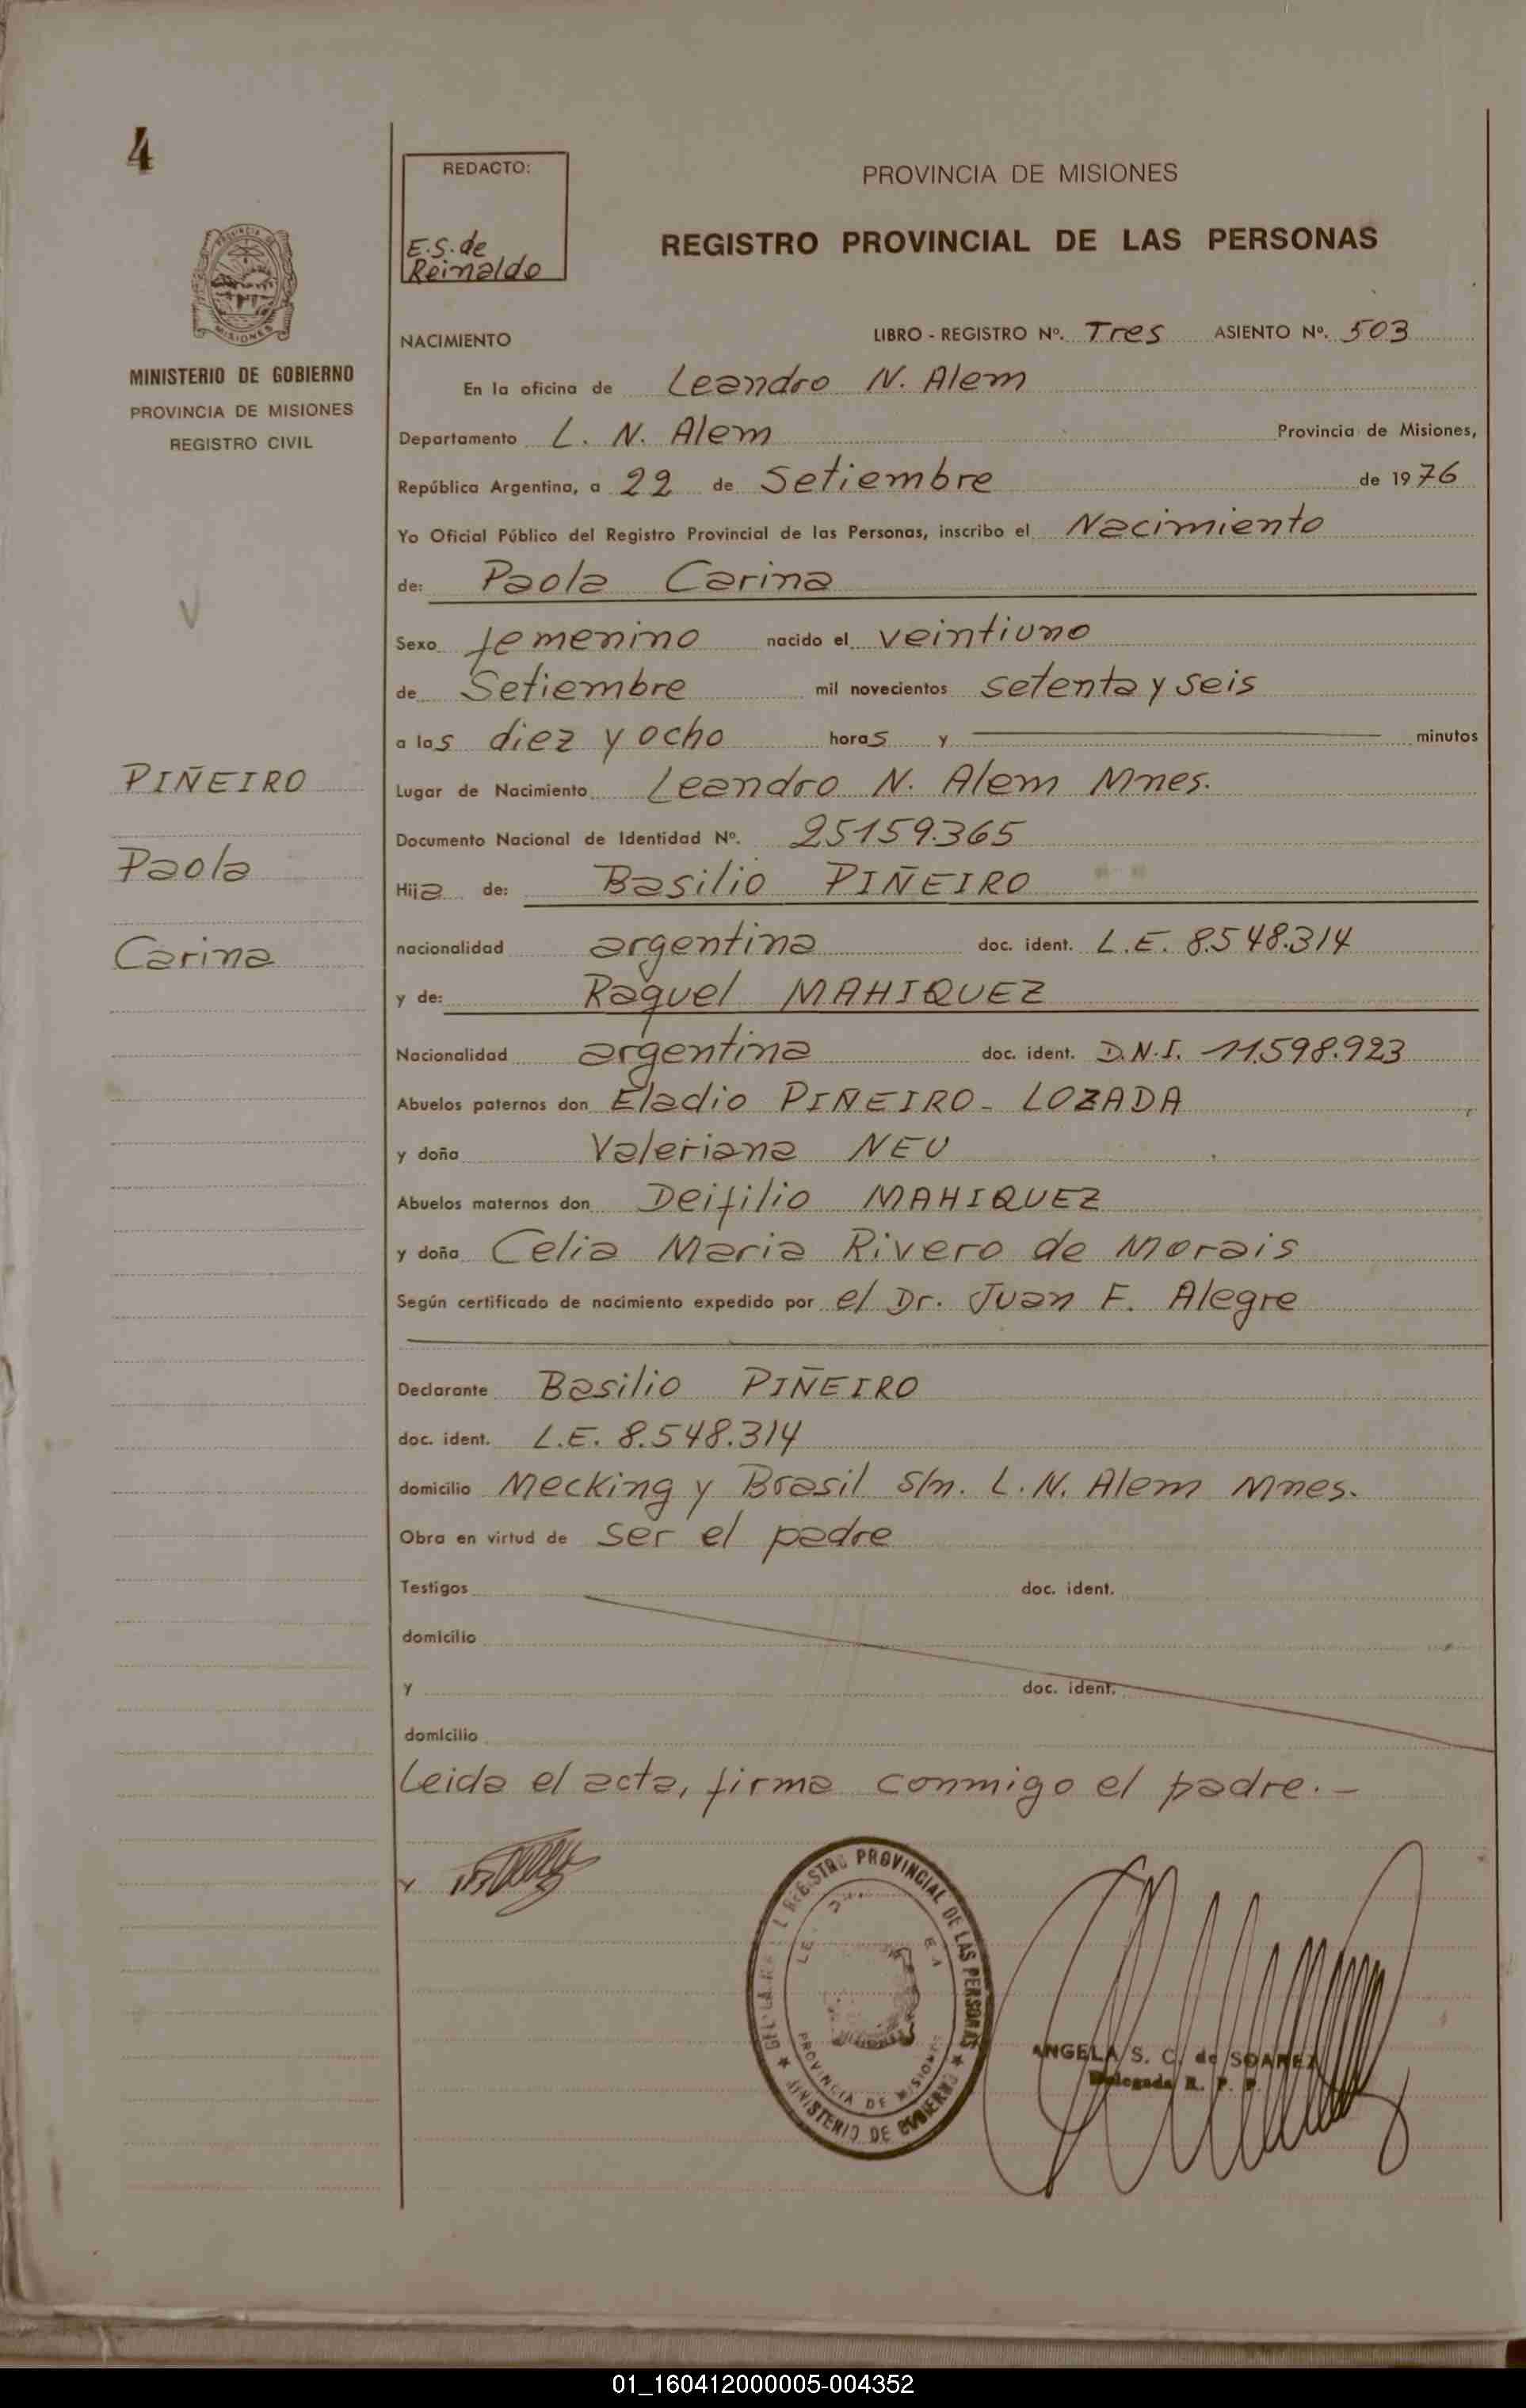 4
REDACTO:
E.S. de
Reinaldo
PROVINCIA DE MISIONES
REGISTRO PROVINCIAL DE LAS PERSONAS
MISIONES
MINISTERIO DE GOBIERNO
PROVINCIA DE MISIONES
REGISTRO CIVIL
NACIMIENTO
LIBRO - REGISTRO Nº. Tres ASIENTO Nº. 503
En la oficina de Leandro N. Alem
Departamento L. N. Alem Provincia de Misiones,
República Argentina, a 22 de Setiembre de 1976
Yo Oficial Público del Registro Provincial de las Personas, inscribo el Nacimiento
de: Paola Carina
Sexo femenino nacido el veintiuno
de Setiembre mil novecientos setenta y seis
a las diez y ocho horas y minutos
PIÑEIRO
Lugar de Nacimiento Leandro N. Alem Mnes.
Documento Nacional de Identidad Nº. 25159.365
Paola
Hija de: Basilio PIÑEIRO
Carina
nacionalidad argentina doc. ident. L.E. 8.548.314
y de: Raquel MAHIQUEZ
Nacionalidad argentina doc. ident. D.N.I. 11.598.923
Abuelos paternos don Eladio PIÑEIRO - LOZADA
y doña Valeriana NEU
Abuelos maternos don Deifilio MAHIQUEZ
y doña Celia Maria Rivero de Morais
Según certificado de nacimiento expedido por el Dr. Juan F. Alegre
Declarante Basilio PIÑEIRO
doc. ident. L.E. 8.548.314
domicilio Mecking y Brasil s/n. L. N. Alem Mnes.
Obra en virtud de ser el padre
Testigos doc. ident.
domicilio
y doc. ident.
domicilio
Leida el acta, firma conmigo el padre. -
REGISTRO PROVINCIAL DE LAS PERSONAS
PROVINCIA DE MISIONES
MINISTERIO DE GOBIERNO
ANGELA S. C. de SOAREZ
Delegada R. P. P.
01_160412000005-004352